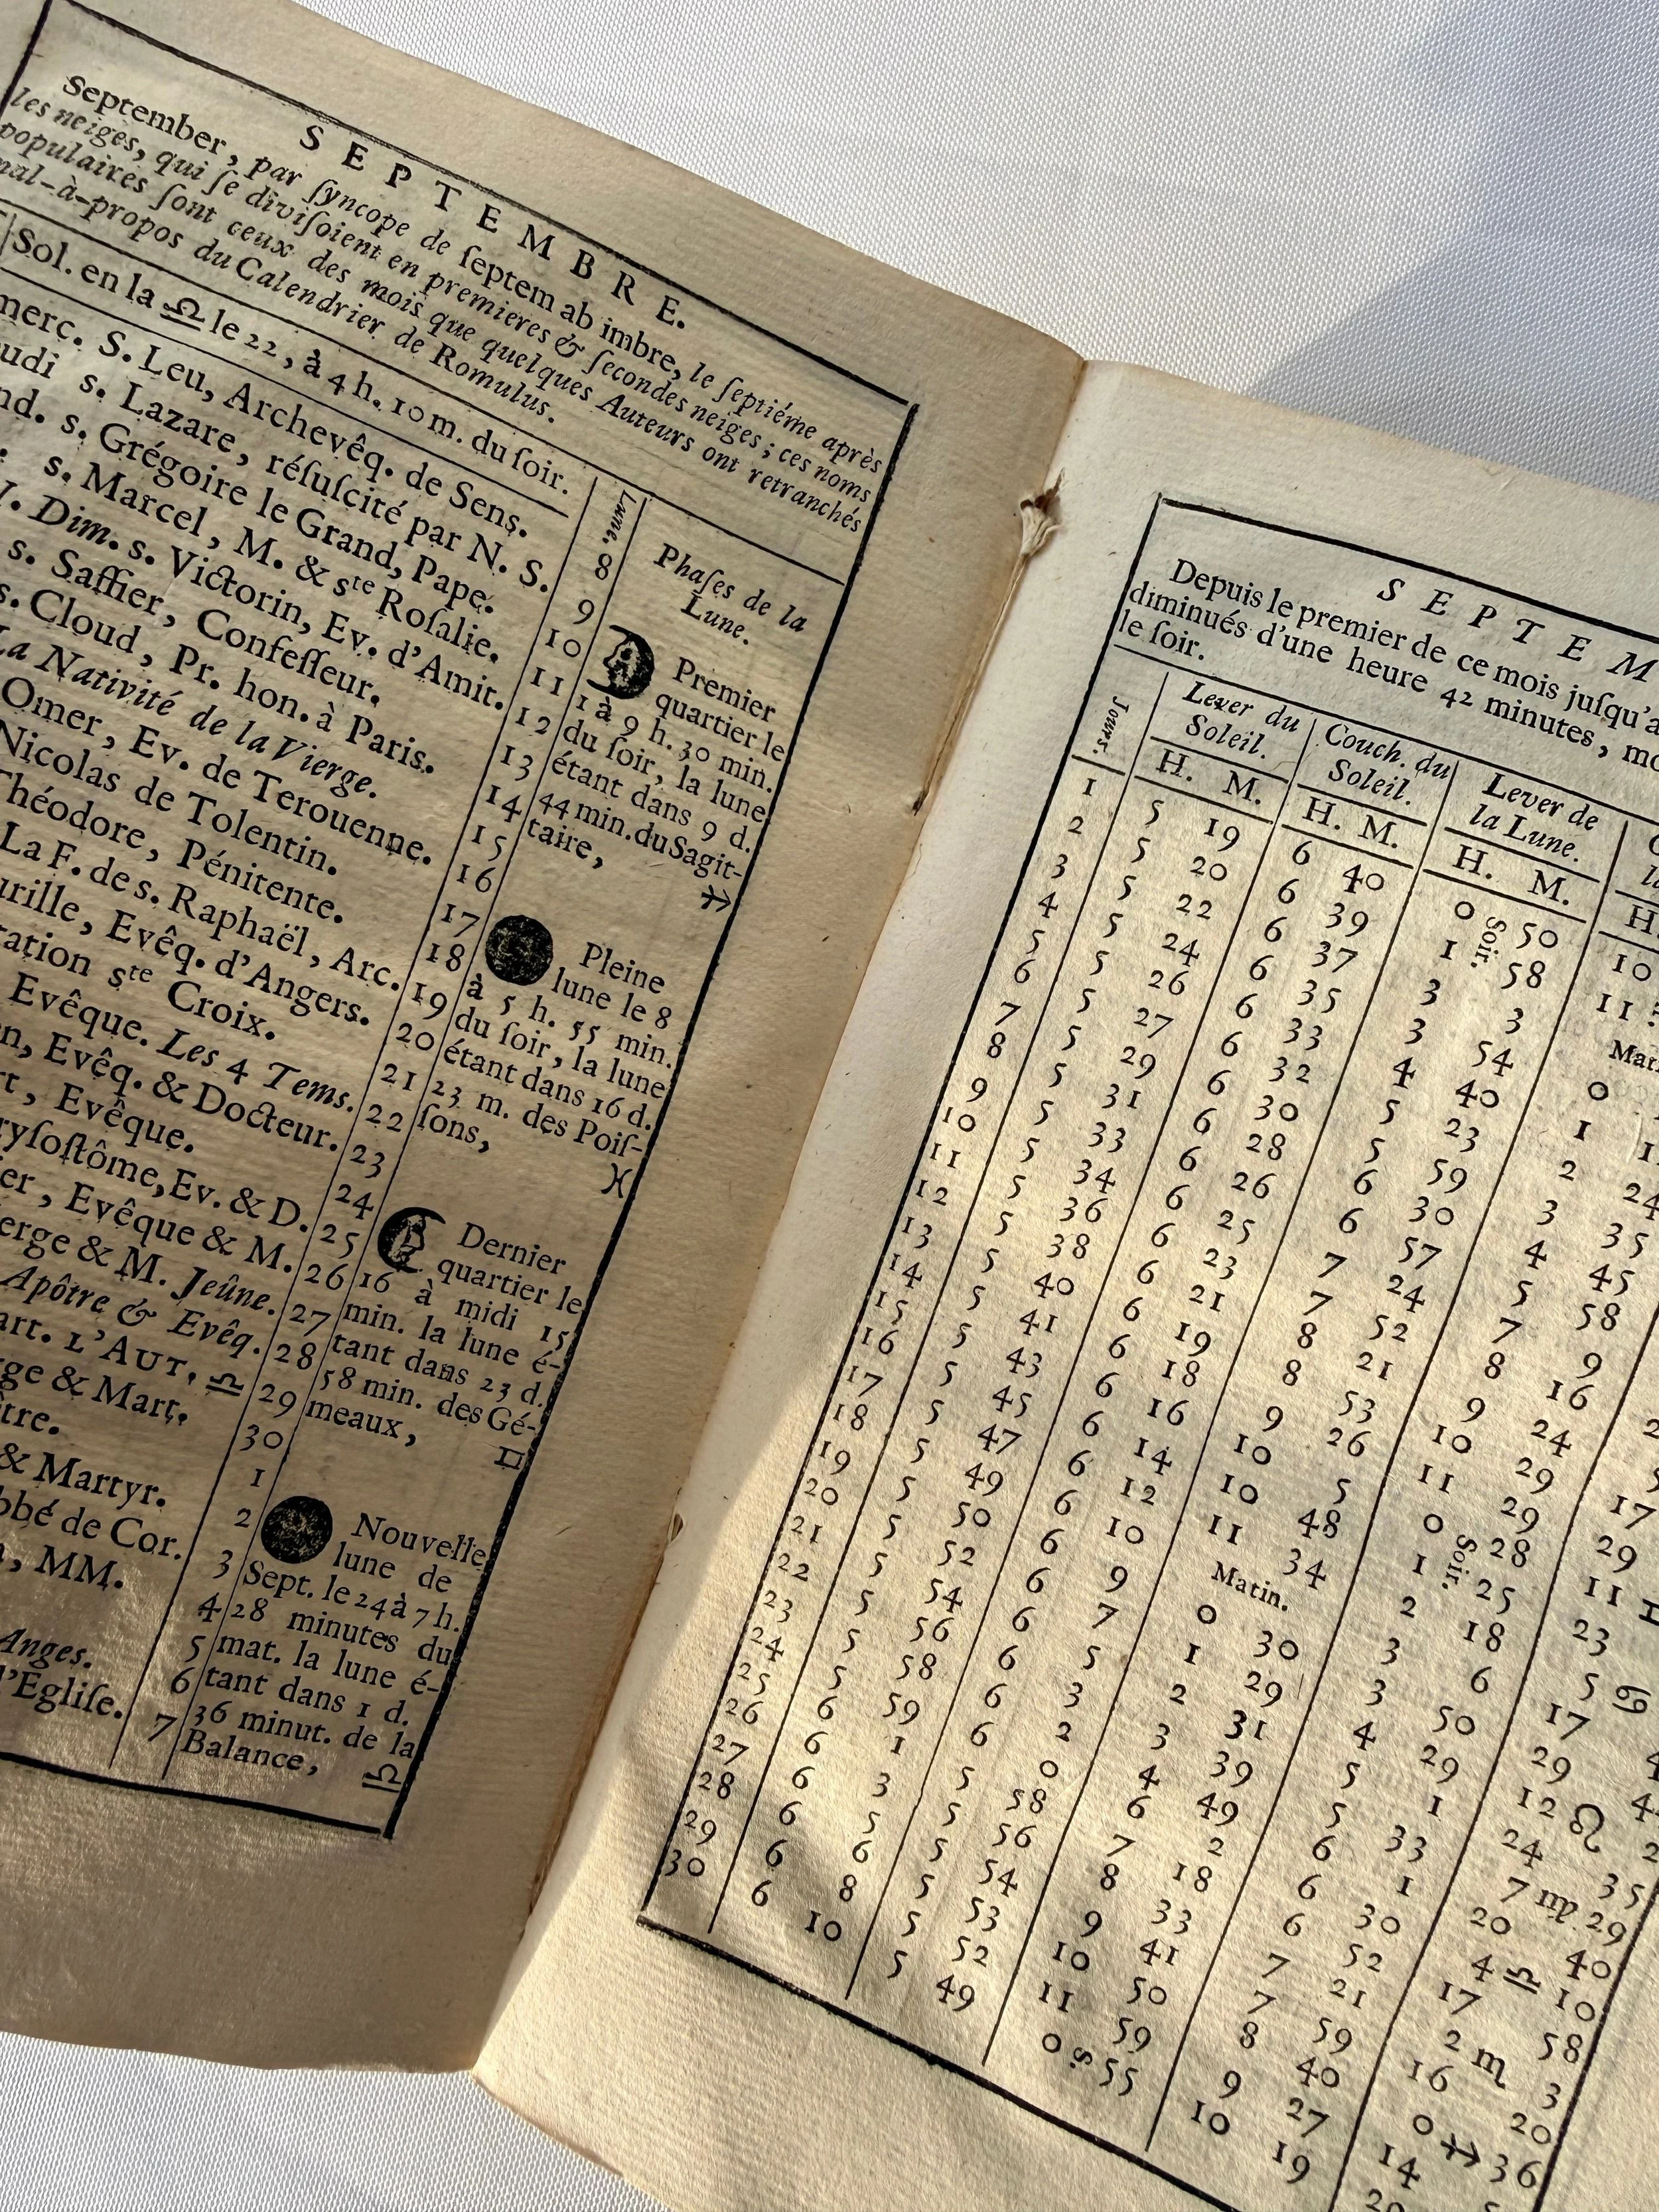 SEPTEMBRE.
September, par ſyncope de ſeptem ab imbre, le ſeptiéme après
les neiges, qui ſe diviſoient en premieres & ſecondes neiges; ces noms
populaires ſont ceux des mois que quelques Auteurs ont retranchés
mal-à-propos du Calendrier de Romulus.
Sol. en la ♎ le 22, à 4 h. 10 m. du ſoir.
Lune.
Phaſes de la
Lune.
merc. S. Leu, Archevêq. de Sens. 8
udi s. Lazare, réſuſcité par N. S. 9
nd. s. Grégoire le Grand, Pape. 10
s. Marcel, M. & ste Roſalie. 11
Dim. s. Victorin, Ev. d'Amit. 12
s. Saffier, Confeſſeur. 13
s. Cloud, Pr. hon. à Paris. 14
La Nativité de la Vierge. 15
Omer, Ev. de Terouenne. 16
Nicolas de Tolentin. 17
Théodore, Pénitente. 18
La F. de s. Raphaël, Arc. 19
urille, Evêq. d'Angers. 20
tation ste Croix. 21
Evêque. Les 4 Tems. 22
n, Evêq. & Docteur. 23
rt, Evêque. 24
ryſoſtôme, Ev. & D. 25
er, Evêque & M. 26
ierge & M. Jeûne. 27
Apôtre & Evêq. 28
art. L'AUT. ♎ 29
ge & Mart. 30
tre. 1
& Martyr. 2
bbé de Cor. 3
MM. 4
5
Anges. 6
l'Egliſe. 7
Premier
quartier le
1 à 9 h. 30 min.
du ſoir, la lune
étant dans 9 d.
44 min. du Sagit-
taire, ♐
Pleine
lune le 8
à 5 h. 55 min.
du ſoir, la lune
étant dans 16 d.
23 m. des Poiſ-
ſons, ♓
Dernier
quartier le
16 à midi 15
min. la lune é-
tant dans 23 d.
58 min. des Gé-
meaux, ♊
Nouvelle
lune de
Sept. le 24 à 7 h.
28 minutes du
mat. la lune é-
tant dans 1 d.
36 minut. de la
Balance, ♎
SEPTEM
Depuis le premier de ce mois juſqu'a
diminués d'une heure 42 minutes, mo
le ſoir.
Jours. Lever du Soleil. Couch. du Soleil. Lever de la Lune.
H. M. H. M. H. M. H.
1 5 19 6 40 0 Soir. 50 10
2 5 20 6 39 1 58 11
3 5 22 6 37 3 3 Mat
4 5 24 6 35 3 54 0
5 5 26 6 33 4 40 1
6 5 27 6 32 5 23 2 24
7 5 29 6 30 5 59 3 35
8 5 31 6 28 6 30 4 45
9 5 33 6 26 6 57 5 58
10 5 34 6 25 7 24 7 9
11 5 36 6 23 7 52 8 16
12 5 38 6 21 8 21 9 24
13 5 40 6 19 8 53 10 29
14 5 41 6 18 9 26 11 29
15 5 43 6 16 10 5 0 Soir. 28
16 5 45 6 14 10 48 1 25
17 5 47 6 12 11 34 2 18
18 5 49 6 10 Matin. 3 6
19 5 50 6 9 0 30 3 50
20 5 52 6 7 1 29 4 29
21 5 54 6 5 2 31 5 1
22 5 56 6 3 3 39 5 33
23 5 58 6 2 4 49 6 1
24 5 59 6 0 6 2 6 30
25 6 1 5 58 7 18 6 52
26 6 3 5 56 8 33 7 21
27 6 5 5 54 9 41 7 59
28 6 6 5 53 10 50 8 40
29 6 8 5 52 11 59 9 27
30 6 10 5 49 0 s 55 10 19
17
29
11 ♊
23
5 ♋
17
29
12 ♌
24
7 ♍ 29
20 40
4 ♎ 10
17 58
2 ♏ 3
16 20
0 ♐ 36
14